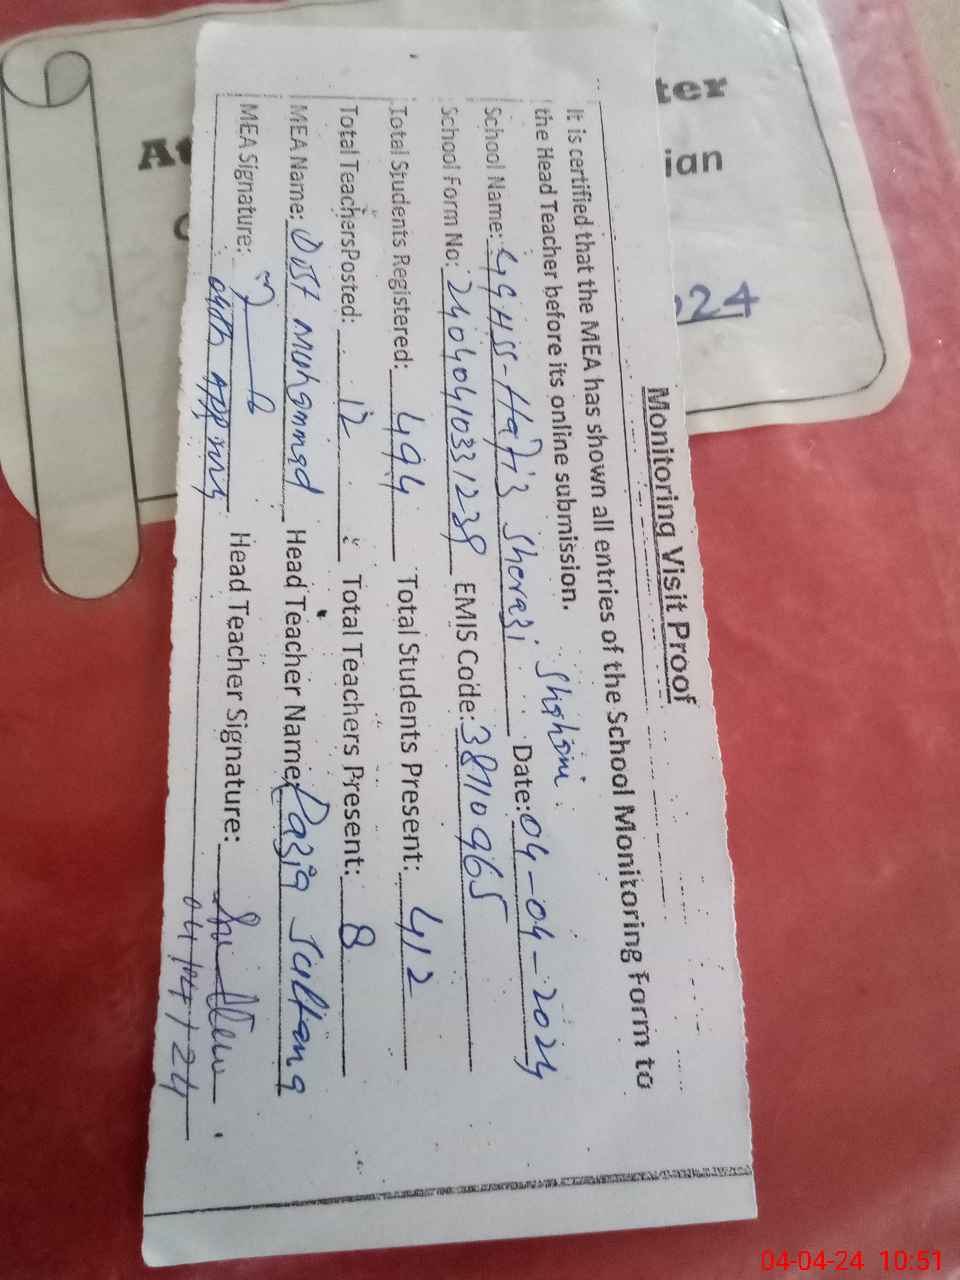 Monitoring Visit Proof
It is certified that the MEA has shown all entries of the School Monitoring Form to
the Head Teacher before its online submission. Shahani
School Name: GGHSS-Hafiz Sherazi Date: 04-04-2024
School Form No: 24040410331239 EMIS Code: 38110965
Total Students Registered: 494 Total Students Present: 412
Total Teachers Posted: 12 Total Teachers Present: 8
MEA Name: Dost Muhammad Head Teacher Name: Razia Sultana
MEA Signature: Head Teacher Signature:
04/04/24
ter
ian
024
04-04-24 10:51